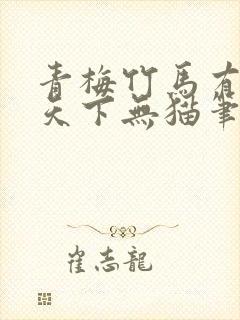 青梅竹馬有
天下無貓筆
崔志龍